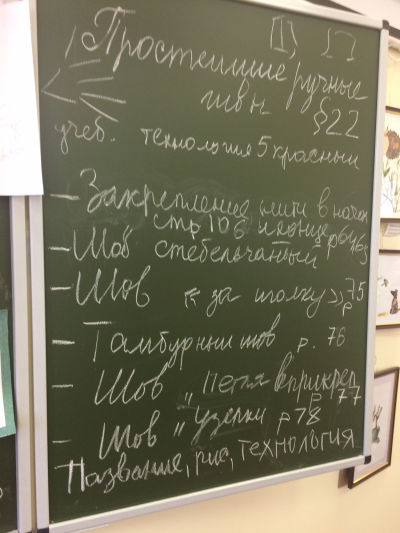 Простейшие ручные
швы §22
учеб. технология 5 красный
– Закрепление нити в начале
стр 106 и конце р64
– Шов стебельчатый р
– Шов « за иголку » р 75
– Тамбурный шов р. 76
– Шов „ петля вприкреп
р 77
– Шов „ Узелки р 78
Название, рис, технология